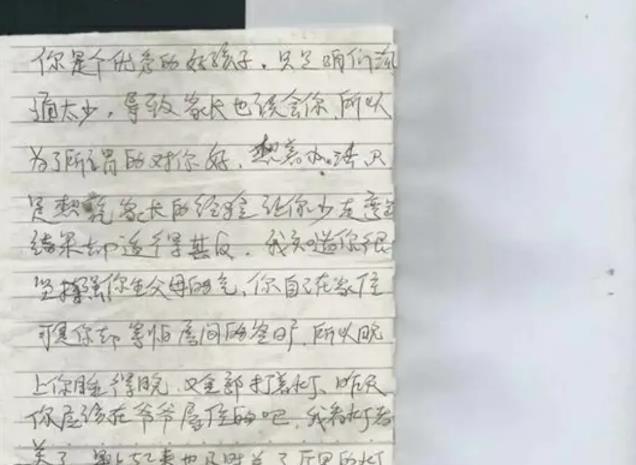 你是个优秀的好孩子，只是咱们沟
通太少，导致家长也误会你，所以
为了所谓的对你好，想着办法只
是想凭家长的经验让你少走弯路
结果却适得其反，我知道你很
坚强你生父母的气，你自己在家住
可是你却害怕房间的空旷，所以晚
上你睡得晚，又全部打着灯，昨天
你应该在爷爷屋住的吧，我看灯都
关了，早上起来也及时关了厅里的灯